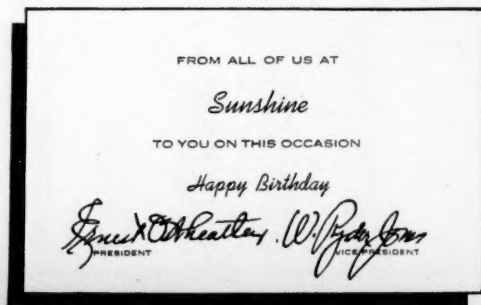 FROM ALL OF US AT
Sunshine
TO YOU ON THIS OCCASION
Happy Birthday
Ernest W. Ryder Jones
PRESIDENT VICE PRESIDENT